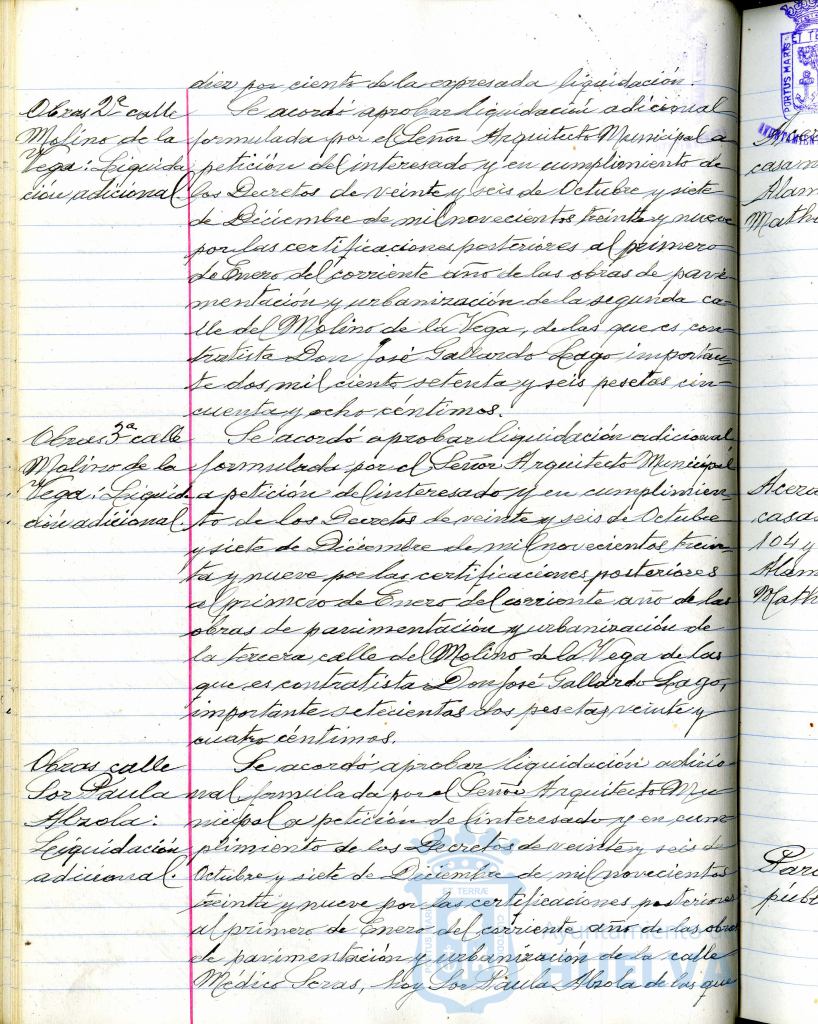 diez por ciento de la expresada liquidación.
Obras 2ª calle
Molino de la
Vega: Liquida
ción adicional.
Se acordó aprobar liquidación adicional
formulada por el Señor Arquitecto Municipal a
petición del interesado y en cumplimiento de
los Decretos de veinte y seis de Octubre y siete
de Diciembre de mil novecientos treinta y nueve
por las certificaciones posteriores al primero
de Enero del corriente año de las obras de pavi-
mentación y urbanización de la segunda ca-
lle del Molino de la Vega, de las que es con-
tratista Don José Gallardo Lago importan-
te dos mil ciento setenta y seis pesetas cin-
cuenta y ocho céntimos.
Obras 3ª calle
Molino de la
Vega: Liquida
ción adicional.
Se acordó aprobar liquidación adicional
formulada por el Señor Arquitecto Municipal
a petición del interesado y en cumplimien-
to de los Decretos de veinte y seis de Octubre
y siete de Diciembre de mil novecientos trein-
ta y nueve por las certificaciones posteriores
al primero de Enero del corriente año de las
obras de pavimentación y urbanización de
la tercera calle del Molino de la Vega de las
que es contratista Don José Gallardo Lago,
importante setecientos dos pesetas veinte y
cuatro céntimos.
Obras calle
Sor Paula
Alzola:
Liquidación
adicional.
Se acordó aprobar liquidación adicio-
nal formulada por el Señor Arquitecto Mu-
nicipal a petición del interesado y en cum-
plimiento de los Decretos de veinte y seis de
Octubre y siete de Diciembre de mil novecientos
treinta y nueve por las certificaciones posteriores
al primero de Enero del corriente año de las obras
de pavimentación y urbanización de la calle
Médico Seras, hoy Sor Paula Alzola de las que
PORTUS MARIS ET TERRÆ CUSTODIA
Ayuntamiento
HUELVA
PORTUS MARIS
casa
Alam
Math
Acera
casas
104 y
Alam
Math